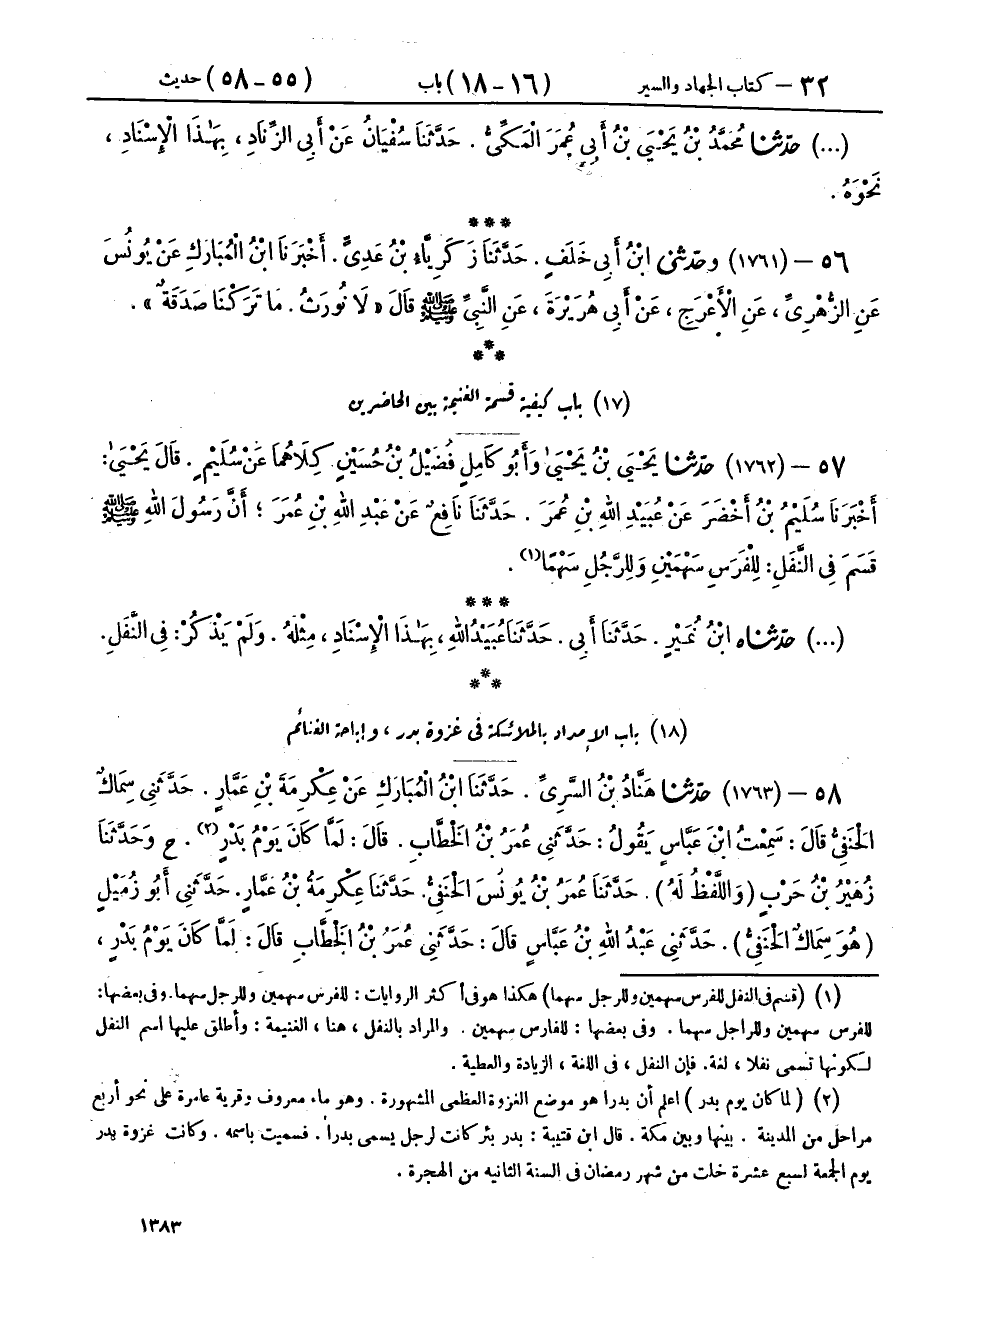 ٣٢ – كتاب الجهاد والسير (١٦ – ١٨) باب (٥٥ – ٥٨) حديث
(...) حدّثنا مُحَمَّدُ بْنُ يَحْيَى بْنُ أَبِي عُمَرَ الْمَكِّىُّ . حَدَّثَنَا سُفْيَانُ عَنْ أَبِى الزِّنَادِ ، بِهَٰذَا الْإِسْنَادِ ،
نَحْوَهُ .
* * *
٥٦ – (١٧٦١) وحدّثنى ابْنُ أَبِى خَلَفٍ . حَدَّثَنَا زَكَرِيَّاءِ بْنُ عَدِىٍّ . أَخْبَرَنَا ابْنُ الْمُبَارَكِ عَنْ يُونُسَ
عَنِ الزُّهْرِىِّ ، عَنِ الْأَعْرَجِ ، عَنْ أَبِى هُرَيْرَةَ ، عَنِ النَّبِىِّ ﷺ قَالَ « لَا نُورَثُ . مَا تَرَكْنَا صَدَقَةٌ » .
* * *
(١٧) باب كيفية قسمة الغنيمة بين الحاضرين
٥٧ – (١٧٦٢) حدّثنا يَحْيَى بْنُ يَحْيَىٰ وَأَبُو كَامِلٍ فُضَيْلُ بْنُ حُسَيْنٍ كِلَاهُمَا عَنْ سُلَيْمٍ . قَالَ يَحْيَىٰ :
أَخْبَرَنَا سُلَيْمُ بْنُ أَخْضَرَ عَنْ عُبَيْدِ اللهِ بْنِ عُمَرَ . حَدَّثَنَا نَافِعٌ عَنْ عَبْدِ اللهِ بْنِ عُمَرَ ؛ أَنَّ رَسُولَ اللهِ ﷺ
قَسَمَ فِى النَّفَلِ : لِلْفَرَسِ سَهْمَيْنِ وَلِلرَّجُلِ سَهْمًا(١) .
* * *
(...) حدّثناه ابْنُ نُمَيْرٍ . حَدَّثَنَا أَبِى . حَدَّثَنَا عُبَيْدُ اللهِ ، بِهَٰذَا الْإِسْنَادِ ، مِثْلَهُ . وَلَمْ يَذْكُرْ : فِى النَّفَلِ .
* * *
(١٨) باب الإمداد بالملائكة فى غزوة بدر ، وإباحة الغنائم
٥٨ – (١٧٦٣) حدّثنا هَنَّادُ بْنُ السَّرِىِّ . حَدَّثَنَا ابْنُ الْمُبَارَكِ عَنْ عِكْرِمَةَ بْنِ عَمَّارٍ . حَدَّثَنِى سِمَاكٌ
الْحَنَفِىُّ قَالَ : سَمِعْتُ ابْنَ عَبَّاسٍ يَقُولُ : حَدَّثَنِى عُمَرُ بْنُ الْخَطَّابِ . قَالَ : لَمَّا كَانَ يَوْمُ بَدْرٍ(٢) . ح وَحَدَّثَنَا
زُهَيْرُ بْنُ حَرْبٍ ( وَاللَّفْظُ لَهُ ) . حَدَّثَنَا عُمَرُ بْنُ يُونُسَ الْحَنَفِىُّ . حَدَّثَنَا عِكْرِمَةُ بْنُ عَمَّارٍ . حَدَّثَنِى أَبُو زُمَيْلٍ
( هُوَ سِمَاكٌ الْحَنَفِىُّ ) . حَدَّثَنِى عَبْدُ اللهِ بْنُ عَبَّاسٍ قَالَ : حَدَّثَنِى عُمَرُ بْنُ الْخَطَّابِ قَالَ : لَمَّا كَانَ يَوْمُ بَدْرٍ ،
(١) (قسم فى النفل للفرس سهمين وللرجل سهما) هكذا هو فى أكثر الروايات : للفرس سهمين وللرجل سهما. وفى بعضها :
للفرس سهمين وللراجل سهما . وفى بعضها : للفارس سهمين . والمراد بالنفل ، هنا ، الغنيمة : وأطلق عليها اسم النفل
لكونها تسمى نفلا ، لغة. فإن النفل ، فى اللغة ، الزيادة والعطية .
(٢) ( لما كان يوم بدر ) اعلم أن بدرا هو موضع الغزوة العظمى المشهورة . وهو ماء معروف وقرية عامرة على نحو أربع
مراحل من المدينة . بينها وبين مكة . قال ابن قتيبة : بدر بئر كانت لرجل يسمى بدرا . فسميت باسمه . وكانت غزوة بدر
يوم الجمعة لسبع عشرة خلت من شهر رمضان فى السنة الثانيه من الهجرة .
١٣٨٣